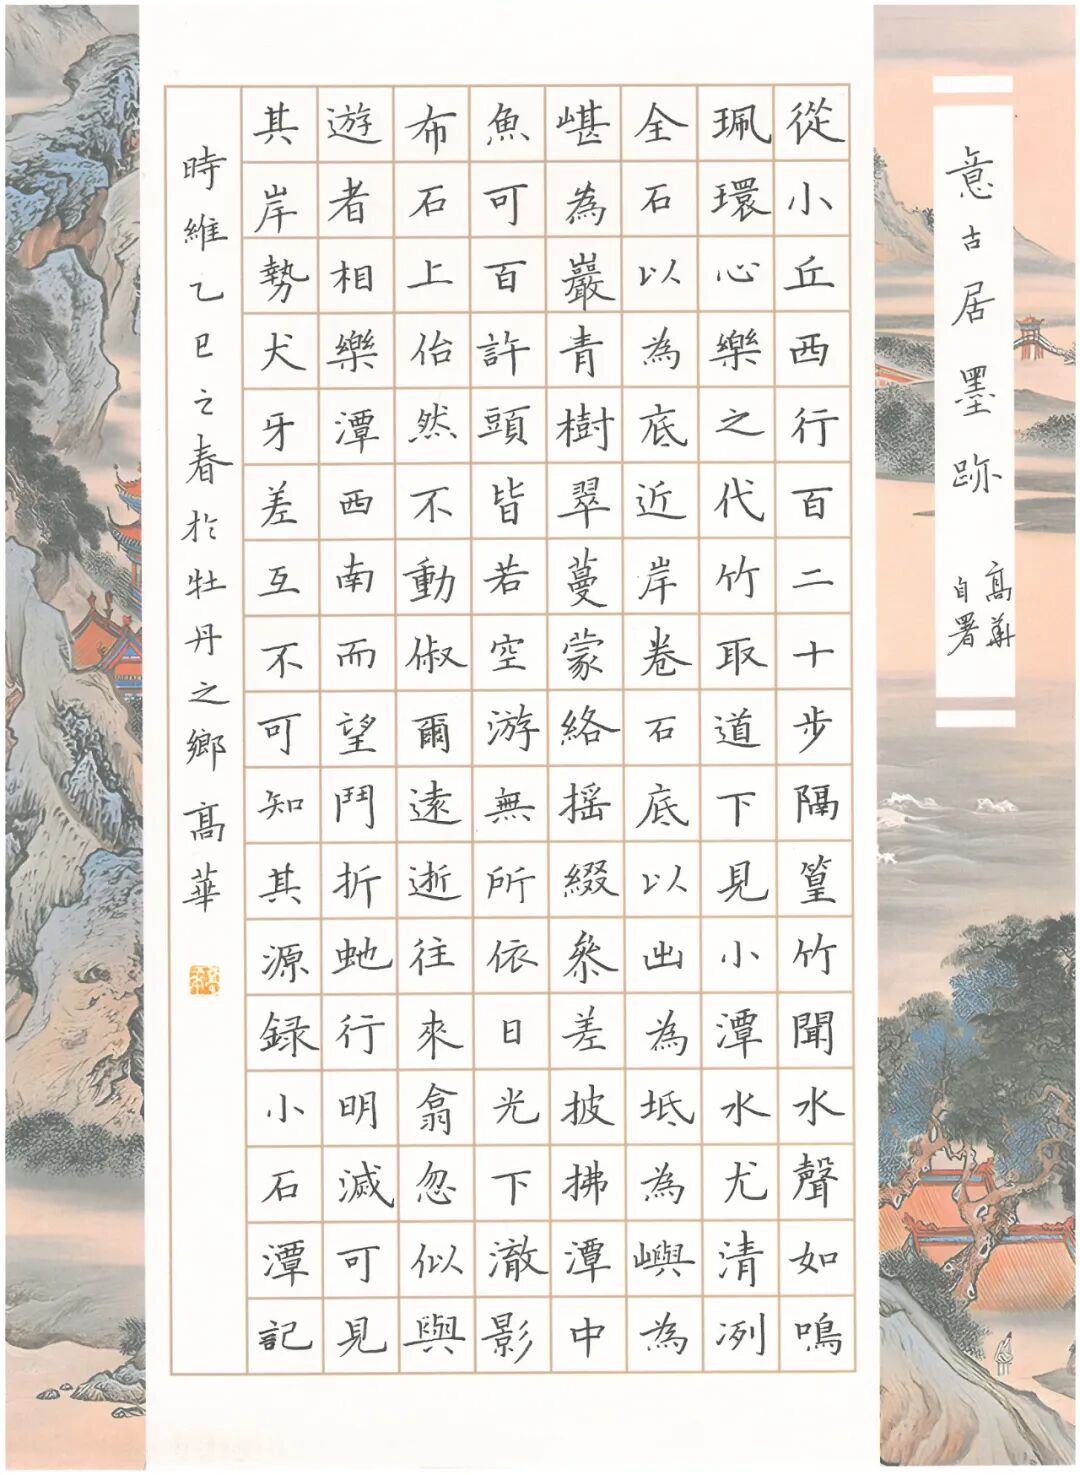 意古居墨跡
高華
自署
從小丘西行百二十步隔篁竹聞水聲如鳴
珮環心樂之代竹取道下見小潭水尤清冽
全石以為底近岸卷石底以出為坻為嶼為
嵁為巖青樹翠蔓蒙絡摇綴參差披拂潭中
魚可百許頭皆若空游無所依日光下澈影
布石上佁然不動俶爾遠逝往來翕忽似與
遊者相樂潭西南而望鬥折虵行明滅可見
其岸勢犬牙差互不可知其源録小石潭記
時維乙巳之春於牡丹之鄉高華